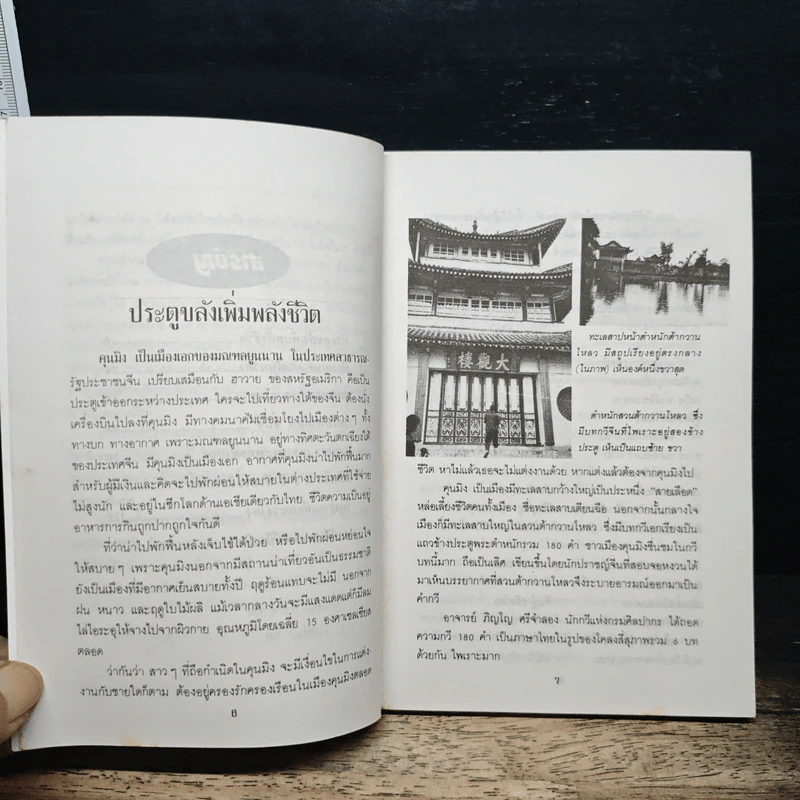 ประตูขลังเพิ่มพลังชีวิต
คุนมิง เป็นเมืองเอกของมณฑลยูนนาน ในประเทศสาธารณ-
รัฐประชาชนจีน เปรียบเสมือนกับ ฮาวาย ของสหรัฐอเมริกา คือเป็น
ประตูเข้าออกระหว่างประเทศ ใครจะไปเที่ยวทางใต้ของจีน ต้องนั่ง
เครื่องบินไปลงที่คุนมิง มีทางคมนาคมเชื่อมโยงไปเมืองต่างๆ ทั้ง
ทางบก ทางอากาศ เพราะมณฑลยูนนาน อยู่ทางทิศตะวันตกเฉียงใต้
ของประเทศจีน มีคุนมิงเป็นเมืองเอก อากาศที่คุนมิงน่าไปพักฟื้นมาก
สำหรับผู้มีเงินและคิดจะไปพักผ่อนให้สบายในต่างประเทศที่ใช้จ่าย
ไม่สูงนัก และอยู่ในซีกโลกด้านเอเซียเดียวกับไทย ชีวิตความเป็นอยู่
อาหารการกินถูกปากถูกใจกันดี
ที่ว่าน่าไปพักฟื้นหลังเจ็บไข้ได้ป่วย หรือไปพักผ่อนหย่อนใจ
ให้สบายๆ เพราะคุนมิงนอกจากมีสถานน่าเที่ยวอันเป็นธรรมชาติ
ยังเป็นเมืองที่มีอากาศเย็นสบายทั้งปี ฤดูร้อนแทบจะไม่มี นอกจาก
ฝน หนาว และฤดูใบไม้ผลิ แม้เวลากลางวันจะมีแสงแดดแต่ก็มีลม
ไล่ไอระอุให้จางไปจากผิวกาย อุณหภูมิโดยเฉลี่ย 15 องศาเซลเซียส
ตลอด
ว่ากันว่า สาวๆ ที่ถือกำเนิดในคุนมิง จะมีเงื่อนไขในการแต่ง-
งานกับชายใดก็ตาม ต้องอยู่ครองรักครองเรือนในเมืองคุนมิงตลอด
๖
大觀樓
ทะเลสาปหน้าตำหนักต้ากวาน
โหลว มีสถูปเรียงอยู่ตรงกลาง
(ในภาพ) เห็นองค์หนึ่งขวาสุด
ตำหนักสวนต้ากวานโหลว ซึ่ง
มีบทกวีจีนที่ไพเราะอยู่สองข้าง
ประตู เห็นเป็นแถบซ้าย ขวา
ชีวิต หาไม่แล้วเธอจะไม่แต่งงานด้วย หากแต่งแล้วต้องจากคุนมิงไป
คุนมิง เป็นเมืองมีทะเลสาบกว้างใหญ่เป็นประหนึ่ง "สายเลือด"
หล่อเลี้ยงชีวิตคนทั้งเมือง ชื่อทะเลสาบเตียนฉือ นอกจากนั้นกลางใจ
เมืองก็มีทะเลสาบใหญ่ในสวนต้ากวานโหลว ซึ่งมีบทกวีเอกเรียงเป็น
แถวข้างประตูพระตำหนักรวม 180 คำ ชาวเมืองคุนมิงชื่นชมในกวี
บทนี้มาก ถือเป็นเลิศ เขียนขึ้นโดยนักปราชญ์จีนที่สอบจอหงวนได้
มาเห็นบรรยากาศที่สวนต้ากวานโหลวจึงระบายอารมณ์ออกมาเป็น
คำกวี
อาจารย์ ภิญโญ ศรีจำลอง นักกวีแห่งกรมศิลปากร ได้ถอด
ความกวี 180 คำ เป็นภาษาไทยในรูปของโคลงสี่สุภาพรวม 6 บท
ด้วยกัน ไพเราะมาก
๗